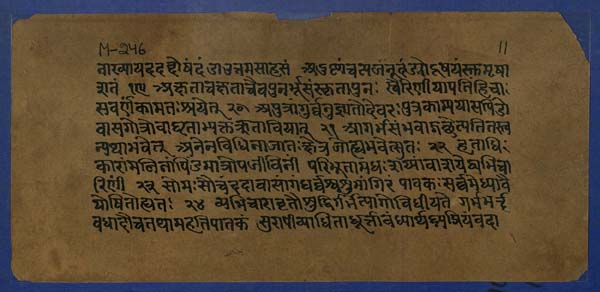 M-246 11
नाख्याय ददद्दोषं दंड उत्तमसाहसं अदुष्टां च त्यजंनूदंड्योदूषयंस्तु मृषा
शतं १९ अक्षताचक्षताचैवपुनर्भूसंस्कृतापुनः स्वैरिणीयापतिंहित्वा
सवर्णंकामतःश्रयेत् २० अपुत्रांगुर्वनुज्ञातोदेवरःपुत्रकाम्ययासपिंडो
वासगोत्रोवाघृताभ्यक्तऋतावियात् २१ आगर्भसंभवाद्गछेत्पतितस्त्व
न्यथाभवेत् अनेनविधिनाजातःक्षेत्रजोह्यभवेत्सुतः २२ हृताधि
कारांमलिनांपिंडमात्रोपजीविनीं परिभूतामधःशय्यांवासयेद्व्यभिचा
रिणीं २३ सोमःसौचंददावासांगंधर्वश्चशुभांगिरं पावकःसर्वमेध्यत्वंमे
ध्यायोषितोह्यतः २४ व्यभिचारादृतौशुद्धिर्गर्भेत्यागोविधीयते गर्भभर्तृ
वधादौचतथामहतिपातके सुरापीव्याधिताधूर्तावंध्यार्थघ्न्यप्रियंवदा